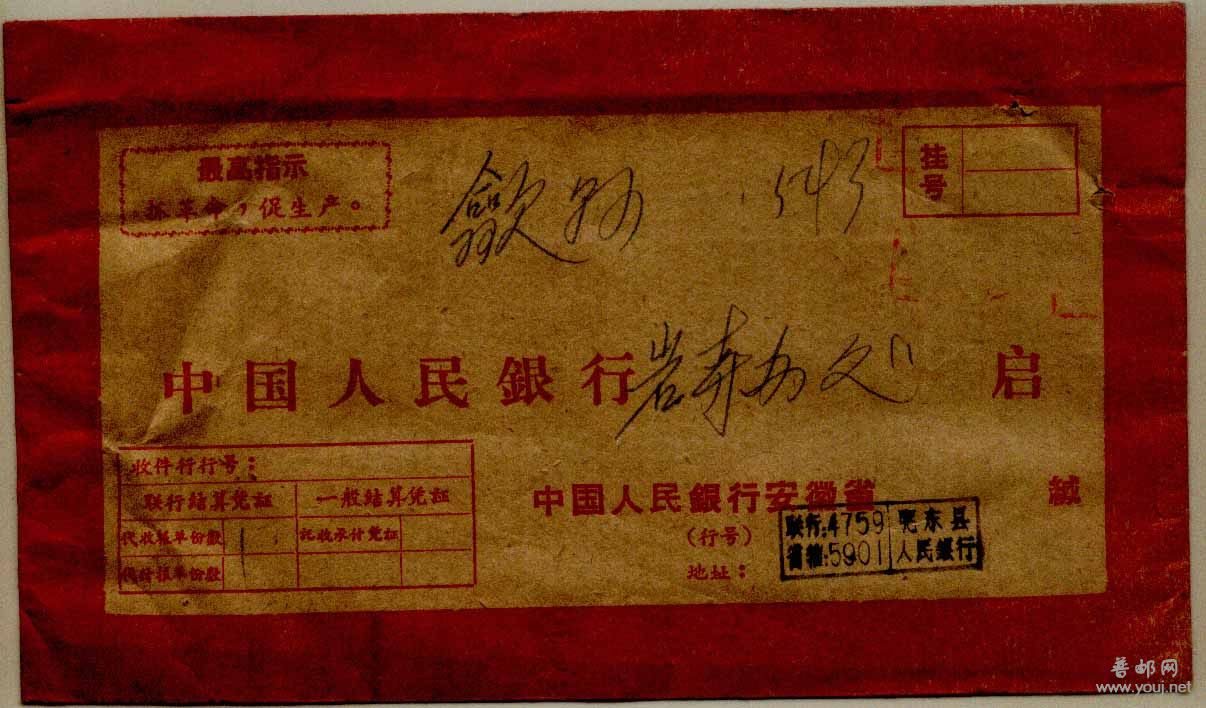 最高指示
抓革命，促生产。
歙县 543
挂号
中国人民銀行岩寺办 启
收件行行号：
联行结算凭证 一般结算凭证
代收报单份数 1 托收承付凭证
代付报单份数
中国人民銀行安徽省 緘
(行号)
地址：
联行:4759 肥东县
省辖:5901 人民銀行
普邮网
www.youj.net